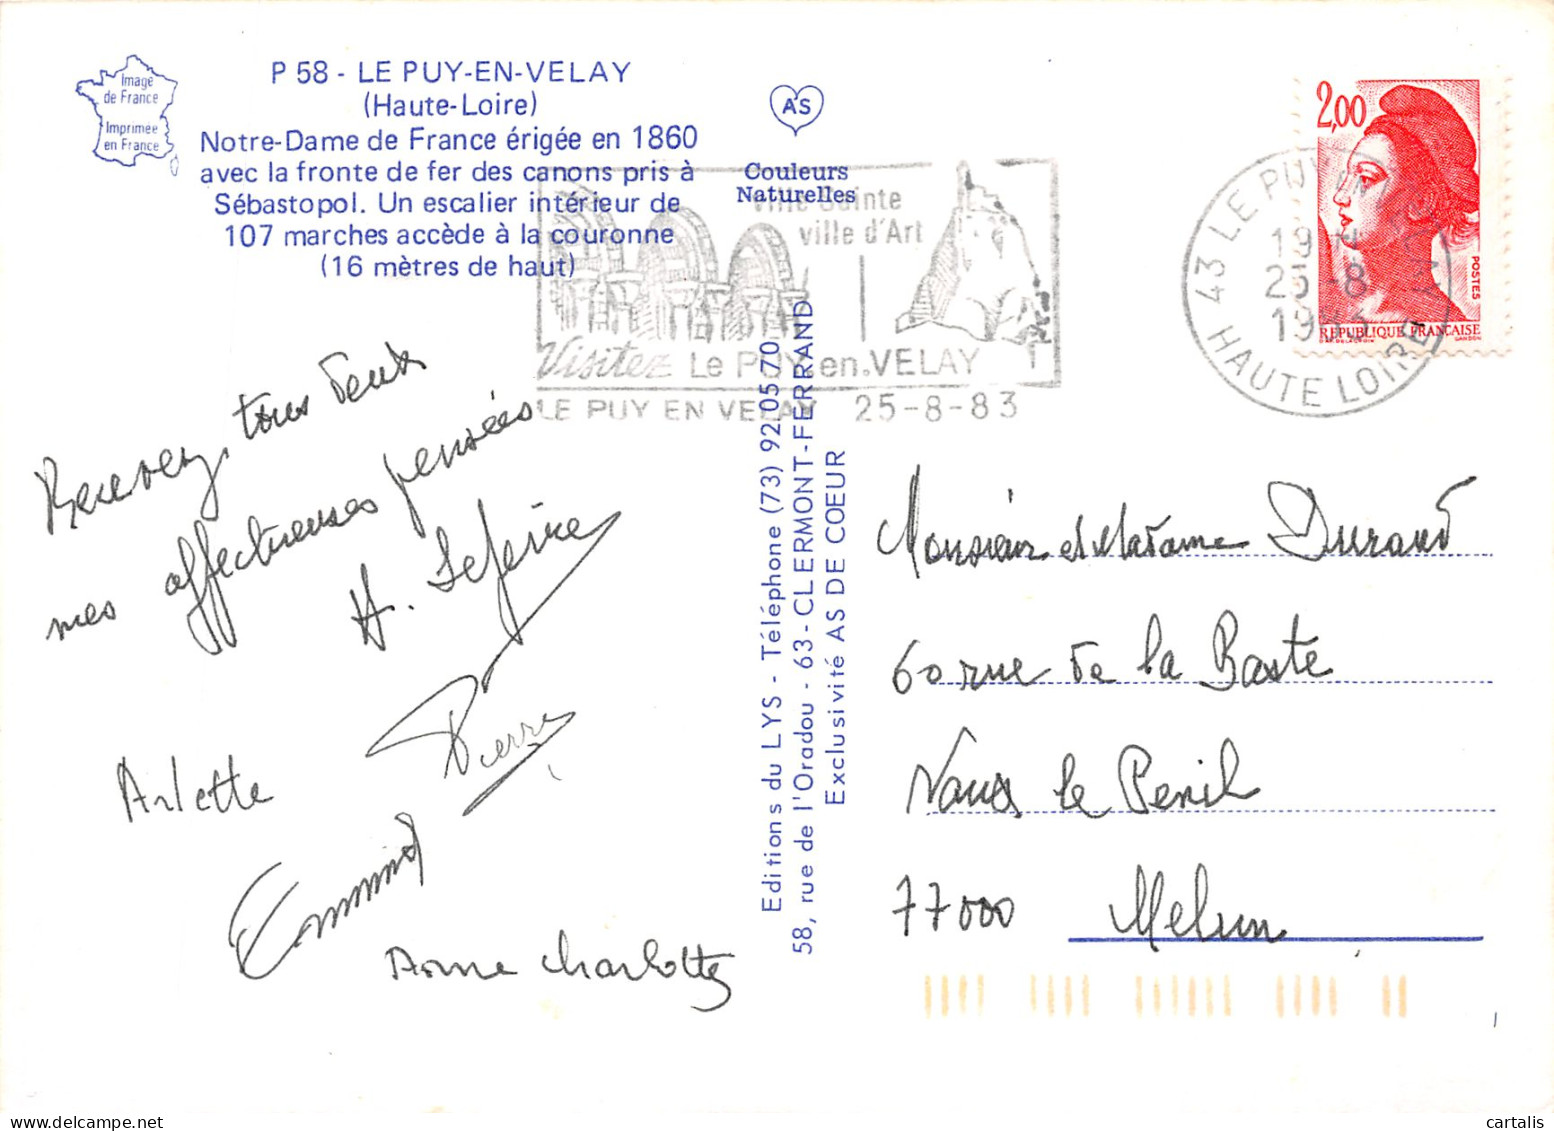 Image
de France
Imprimee
en France
P 58 - LE PUY-EN-VELAY
(Haute-Loire)
Notre-Dame de France érigée en 1860
avec la fronte de fer des canons pris à
Sébastopol. Un escalier intérieur de
107 marches accède à la couronne
(16 mètres de haut)
AS
Couleurs
Naturelles
Ville Sainte
ville d'Art
Visitez Le PUY en VELAY
LE PUY EN VELAY 25-8-83
43 LE PUY EN VELAY
19 H
25-8
1983
HAUTE LOIRE
2,00
POSTES
REPUBLIQUE FRANÇAISE
GANDON
Recevez, tous deux
mes affectueuses pensées
H. Lefevre
Pierre
Arlette
Anne Charlotte
Editions du LYS - Téléphone (73) 92 05 70
58, rue de l'Oradou - 63 - CLERMONT-FERRAND
Exclusivité AS DE COEUR
Monsieur et Madame Durand
60 rue de la Baste
Vaux le Penil
77000 Melun
cartalis